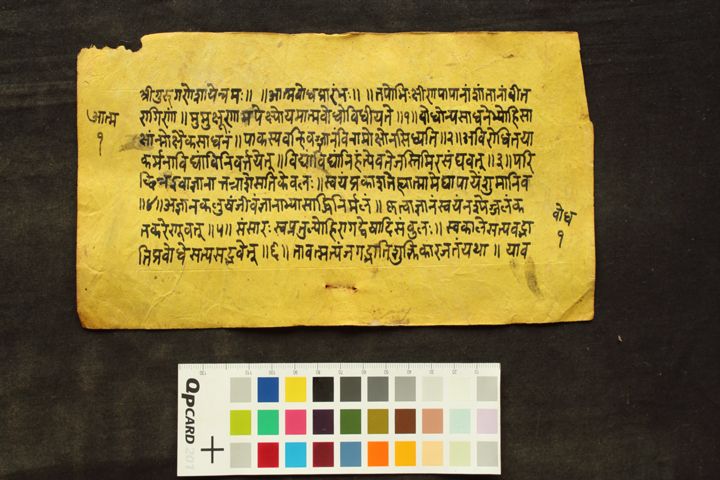 श्रीगुरुगणेशायेन्नमः॥ ॥आत्मबोधप्रारंभः॥ ॥तपोभिःक्षीणपापानांशांतानांवीत
आत्म
रागिणां॥मुमुक्षूणामपेक्ष्योयमात्मबोधोविधीयते॥१॥बोधोन्यसाधनेभ्योहिसा
१
क्षान्मोक्षैकसाधनं॥पाकस्यवन्हिवज्ज्ञानंविनामोक्षोनसिध्यति॥२॥अविरोधितया
कर्मनाविद्याविनिवर्तयेत्॥विद्याविद्यानिहंत्येवतेजस्तिमिरसंघवत्॥३॥परि
छिन्नइवाज्ञानात्तन्नाशेसतिकेवलः॥स्वयंप्रकाशतेह्यात्मामेघापायेंशुमानिव
॥४॥अज्ञानकलुषंजीवंज्ञानाभ्यासाद्विनिर्मलं॥कृत्वाज्ञानंस्वयंनश्येज्जलंक
बोध
तकरेणुवत्॥५॥संसारःस्वप्नतुल्योहिरागद्वेषादिसंकुलः॥स्वकालेसत्यवद्भा
१
तिप्रबोधेसत्यसद्भवेत्॥६॥तावत्सत्यंजगद्भातिशुक्तिकारजतंयथा॥याव
QPCARD 201